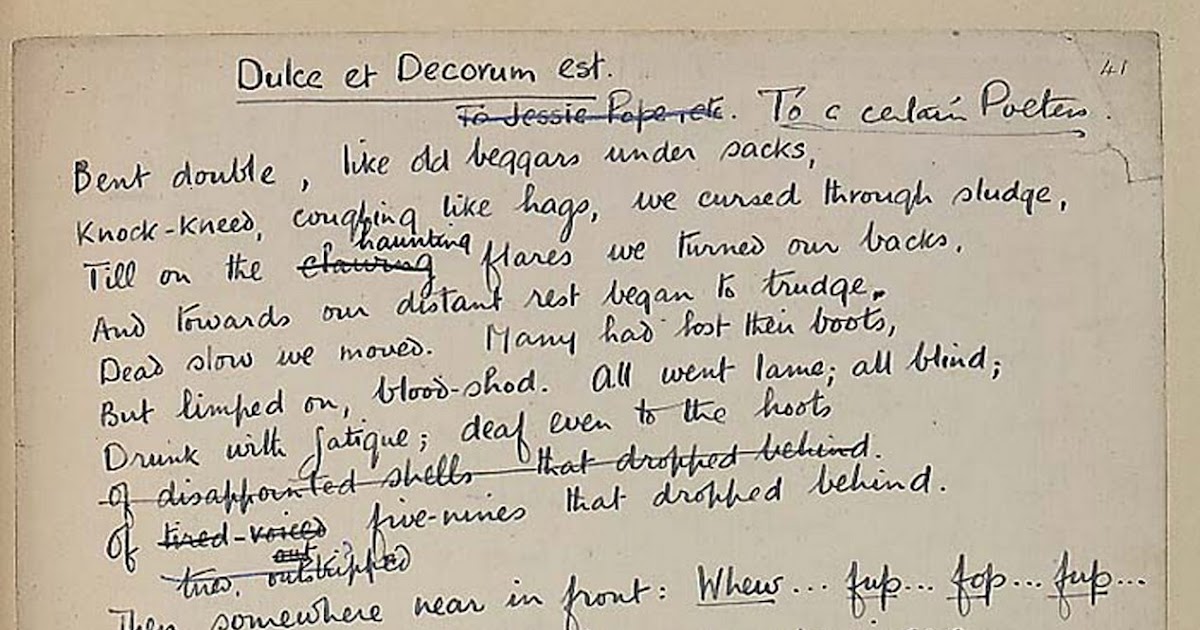 Dulce et Decorum est.
41
To Jessie Pope etc. To a certain Poetess.
Bent double, like old beggars under sacks,
Knock-kneed, coughing like hags, we cursed through sludge,
haunting
Till on the clawing flares we turned our backs,
And towards our distant rest began to trudge.
Dead slow we moved. Many had lost their boots,
But limped on, blood-shod. All went lame; all blind;
Drunk with fatigue; deaf even to the hoots
Of disappointed shells that dropped behind.
Of tired-voiced five-nines that dropped behind.
out
outstripped
Then somewhere near in front: Whew... fup... fop... fup...